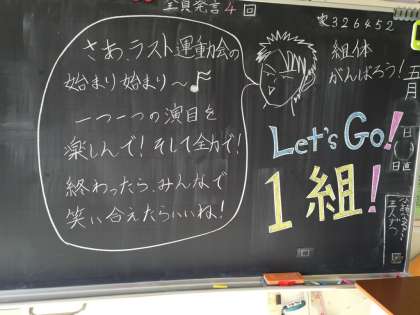 全員発言4回
さあ、ラスト運動会の
始まり始まり～♪
一つ一つの演目を
楽しんで！そして全力で！
終わったら、みんなで
笑い合えたらいいね！
326452
組体
がんばろう！
Let's Go!
1組！
月
日
日直